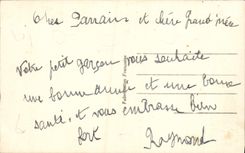 Cher Parrain et chère Grand'mère
Votre petit garçon vous souhaite
une bonne année et une bonne
santé, et vous embrasse bien
fort Raymond